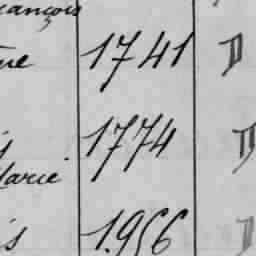 ançois
ne 1741 D
1774 D
Marie
is 1.956 D